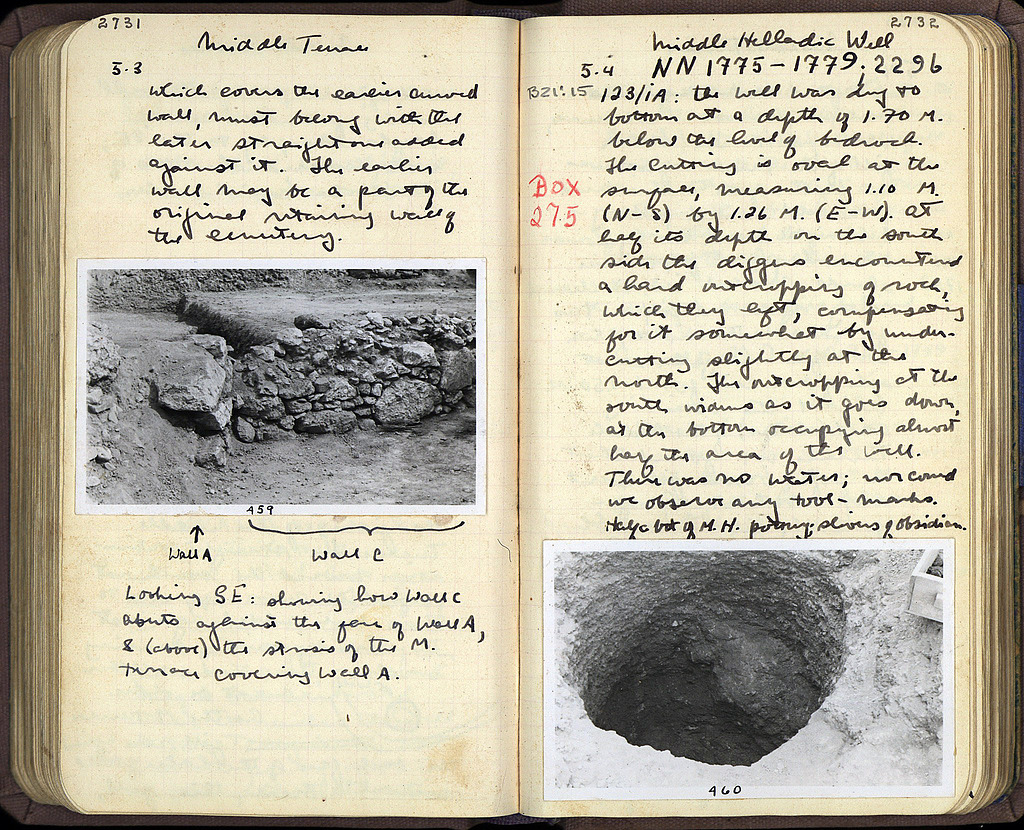 2731
Middle Terrace
5.3
which covers the earlier curved
wall, must belong with the
later straight one added
against it. The earlier
wall may be a part of the
original retaining wall of
the cemetery.
459
Wall A
Wall C
Looking SE: showing how Wall C
abuts against the face of Wall A,
& (above) the strosis of the M.
Terrace covering Wall A.
2732
Middle Helladic Well
5.4 NN 1775-1779, 2296
B21:15 123/IA: the well was dug to
bottom at a depth of 1.70 M.
below the level of bedrock.
The cutting is oval at the
BOX
surface, measuring 1.10 M.
275
(N-S) by 1.26 M. (E-W). At
half its depth on the south
side the diggers encountered
a hard outcropping of rock,
which they left, compensating
for it somewhat by under-
cutting slightly at the
north. The outcropping at the
south widens as it goes down,
at the bottom occupying almost
half the area of the well.
There was no water; nor could
we observe any tool-marks.
Half a bot of M.H. pottery; slivers of obsidian.
460